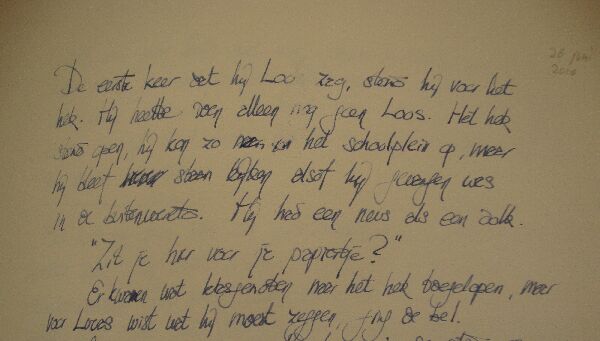 26 juni
De eerste keer dat hij Loos zag, stond hij voor het
hek. Hij heette toen alleen nog geen Loos. Het hek
stond open, hij kon zo het schoolplein op, maar
hij bleef staan kijken alsof hij gevangen was
in de buitenwereld. Hij had een neus als een dolk.
"Zit je hier voor je papiertje?"
Er kwamen wat klasgenoten naar het hek toegelopen, maar
voor Loos wist wat hij moest zeggen, ging de bel.